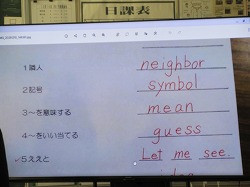 日課表
1隣人 neighbor
2記号 symbol
3～を意味する mean
4～をいい当てる guess
✓5ええと Let me see.